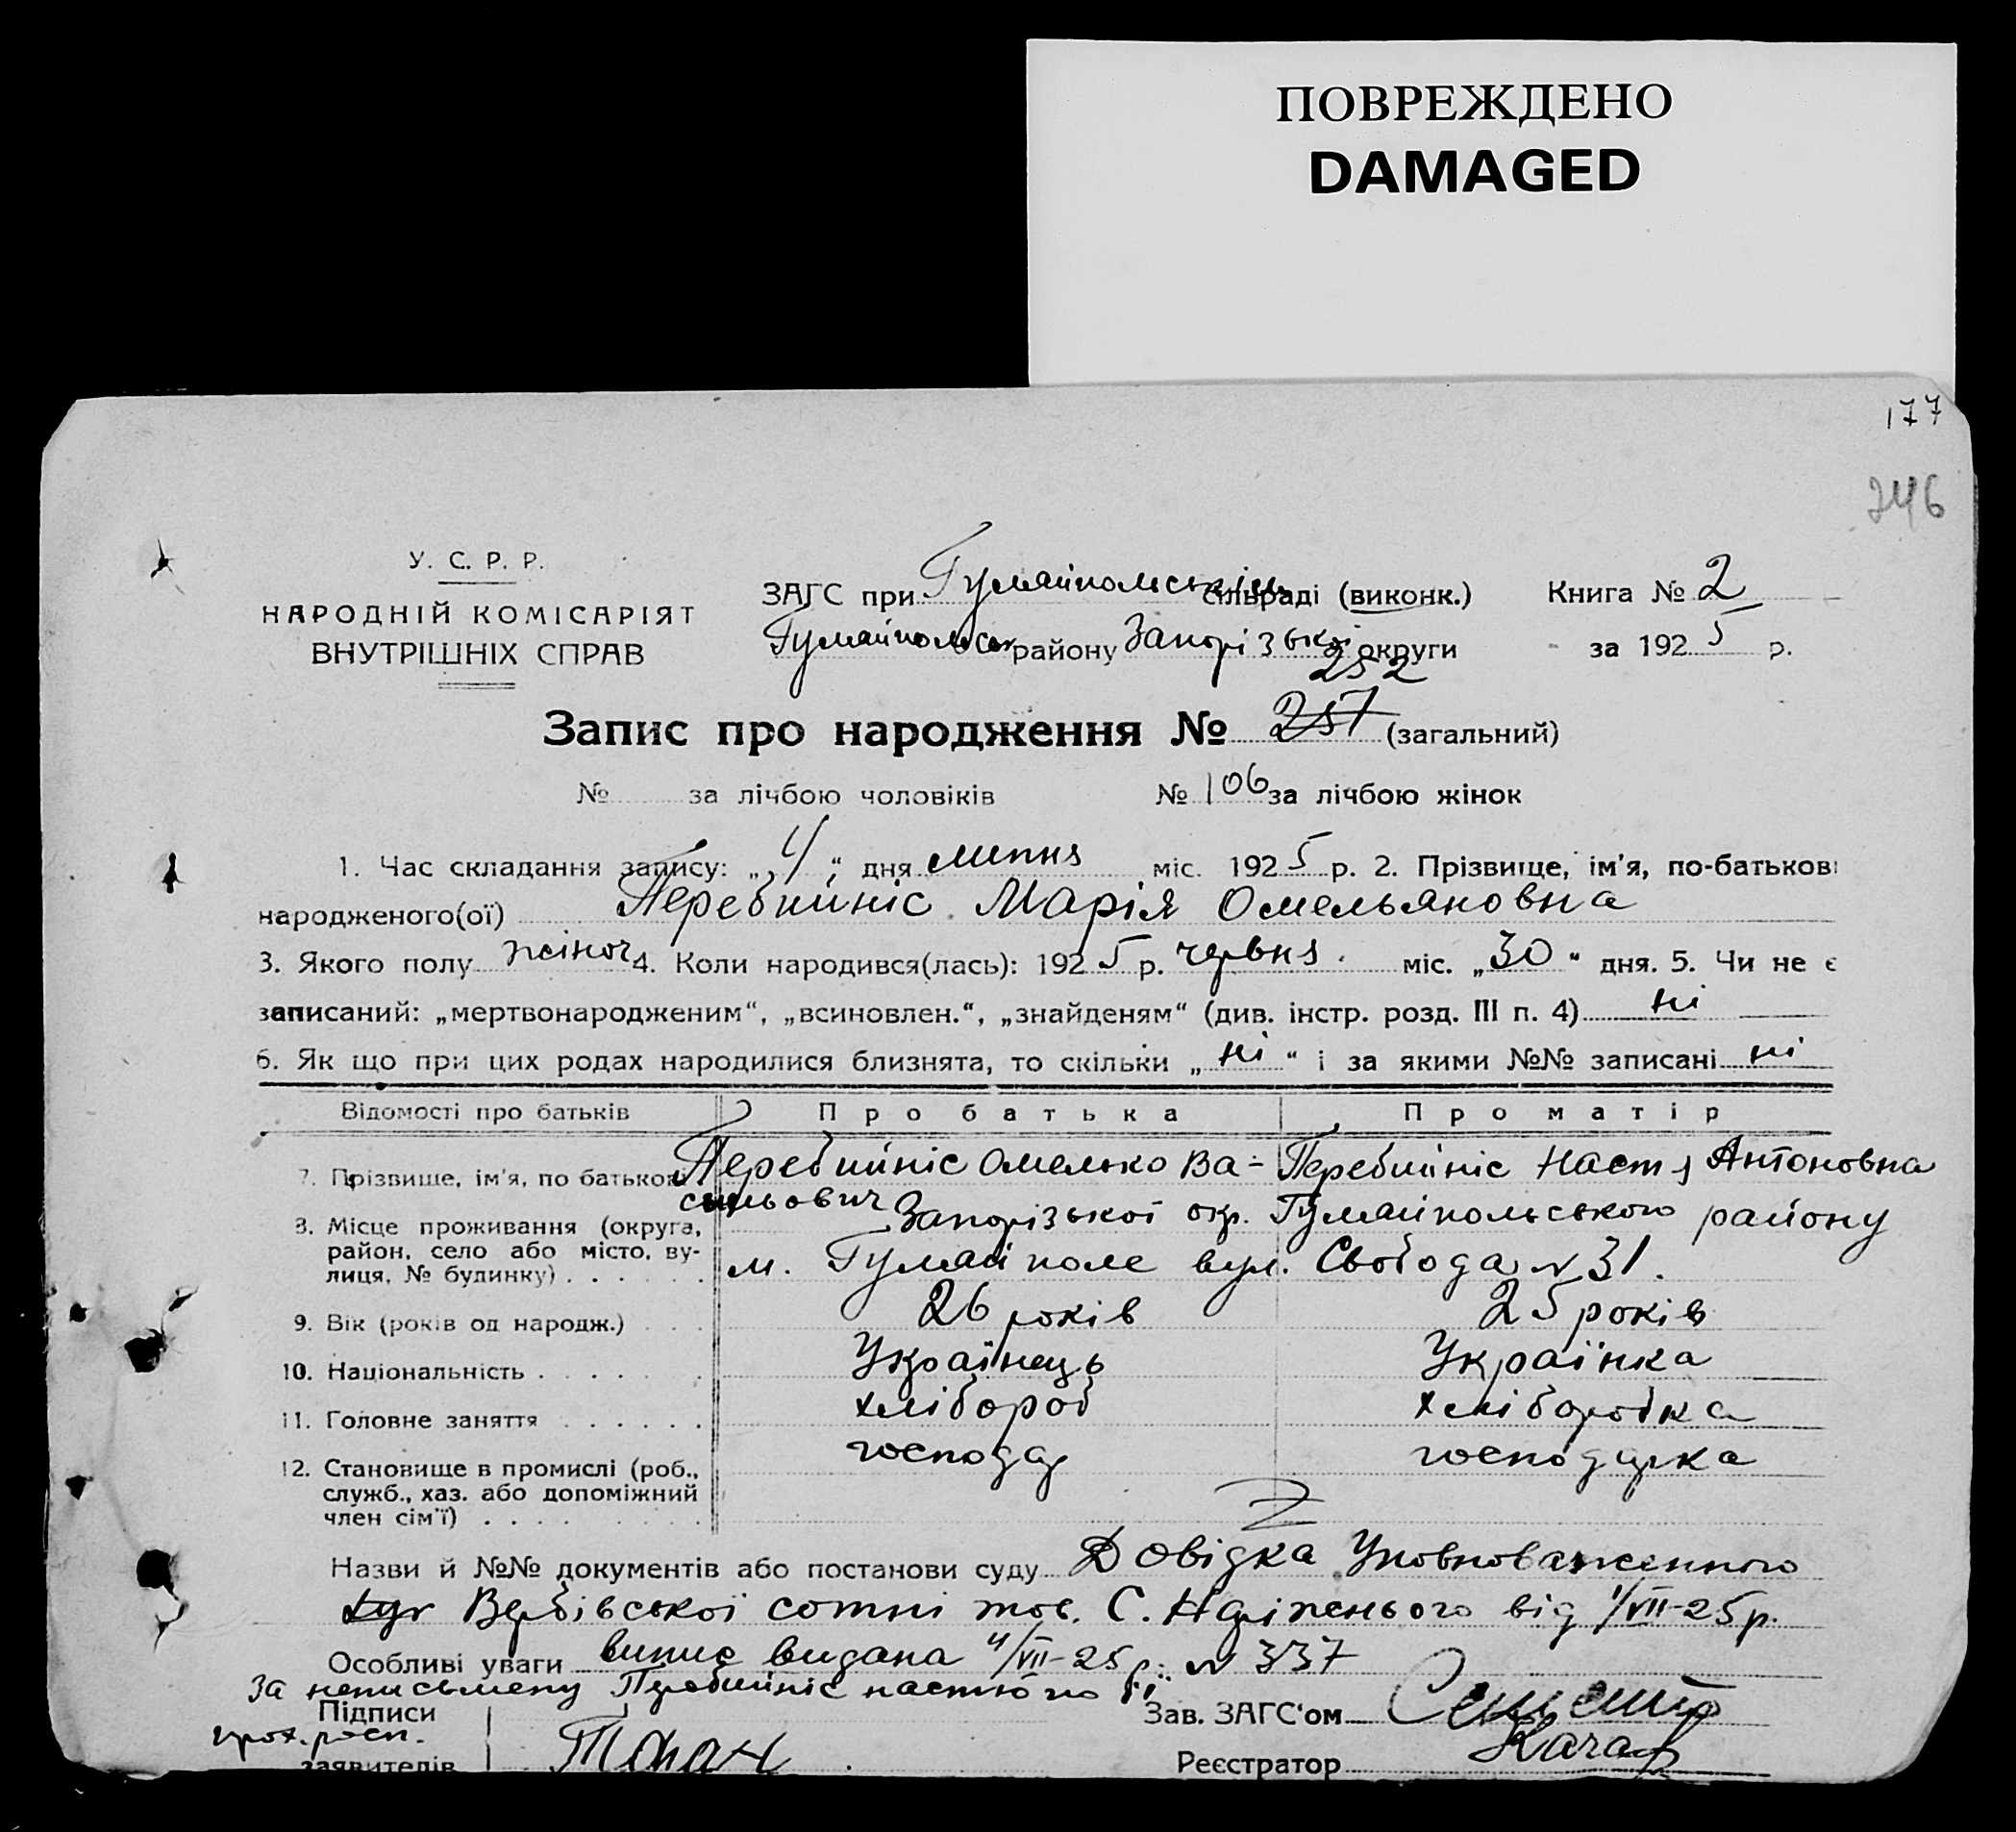 ПОВРЕЖДЕНО
DAMAGED
177
246
У. С. Р. Р.
НАРОДНІЙ КОМІСАРІЯТ
ВНУТРІШНІХ СПРАВ
ЗАГС при Гуляйпольськім сільраді (виконк.)
Гуляйпольськ району Запорізької округи
Книга № 2
за 1925 р.
252
Запис про народження № 257 (загальний)
№ за лічбою чоловіків № 106 за лічбою жінок
1. Час складання запису: „4“ дня липня міс. 1925 р. 2. Прізвище, ім'я, по-батькові
народженого(ої) Перебийніс Марія Омельяновна
3. Якого полу жіноч 4. Коли народився(лась): 1925 р. червня міс. „30“ дня. 5. Чи не є
записаний: „мертвонародженим“, „всиновлен.“, „знайденям“ (див. інстр. розд. III п. 4) ні
6. Як що при цих родах народилися близнята, то скільки „ні“ і за якими №№ записані ні
Відомості про батьків Про батька Про матір
7. Прізвище, ім'я, по батькові Перебийніс Омелько Ва- Перебийніс Настя Антоновна
сильович
8. Місце проживання (округа, Запорізької окр. Гуляйпольського району
район, село або місто, ву-
лиця, № будинку) м. Гуляйполе вул. Свобода № 31.
9. Вік (років од народж.) 26 років 25 років
10. Національність Українець Українка
11. Головне заняття хлібороб хліборобка
12. Становище в промислі (роб., господар господарка
служб., хаз. або допоміжний
член сім'ї)
Назви й №№ документів або постанови суду Довідка Уповноваженного
Вербівської сотні тов. С. Наріжнього від 1/VII-25р.
Особливі уваги випис видана 4/VII-25 р. № 337
За неписьмену Перебийніс настю по її
Підписи
прох. росп.
заявителів
Зав. ЗАГС'ом
Реєстратор